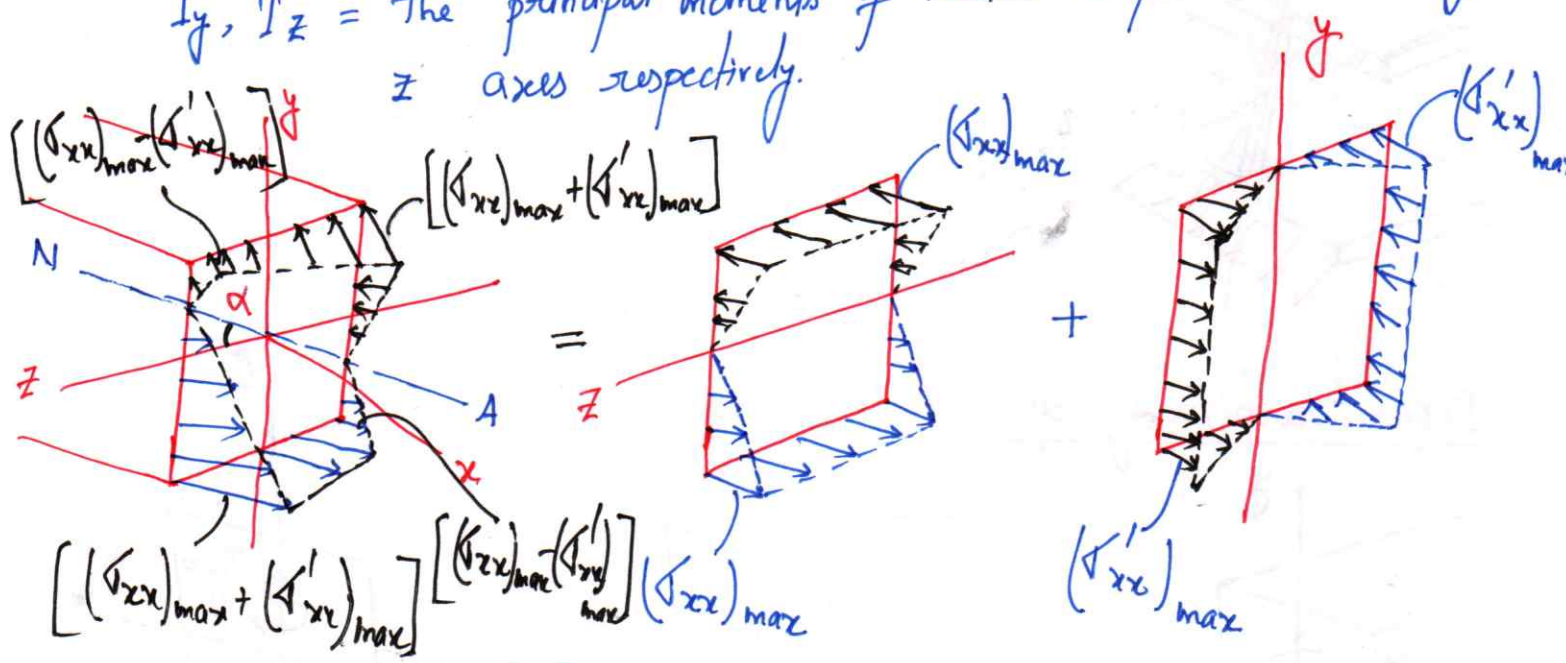 Iy, Iz = The principal moments of
z axes respectively.
y
y
[(σxx)max-(σ'xx)max]
[(σxx)max+(σ'xx)max]
(σxx)max
(σ'xx)max
N
α
=
+
z
z
A
x
[(σxx)max+(σ'xx)max]
[(σxx)max-(σ'xx)max]
(σxx)max
(σ'xx)max